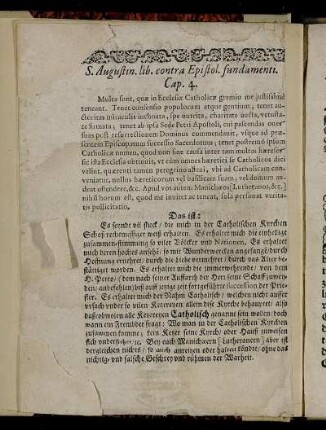 S. Augustin. lib. contra Epistol. fundamenti.
Cap. 4.
Multa sunt, quæ in Ecclesiæ Catholicæ gremio me justissimè
teneant. Tenet consensio populorum atque gentium; tenet auc-
toritas miraculis inchoata, spe nutrita, charitate aucta, vetusta-
te firmata; tenet ab ipsa Sede Petri Apostoli, cui pascendas oues
suas post resurrectionem Dominus commendauit, vsque ad præ-
sentem Episcopatum successio Sacerdotum; tenet postremò ipsum
Catholicæ nomen, quod non sine causa inter tam multas hæreses
sic ista Ecclesia obtinuit, vt cùm omnes hæretici se Catholicos dici
velint, quærenti tamen peregrino alicui, vbi ad Catholicam con-
veniatur, nullus hæreticorum vel basilicam suam, vel domum au-
deat ostendere, &c. Apud vos autem Manichæos (Lutheranos, &c.)
nihil horum est, quod me invitet ac teneat, sola personat veritatis
pollicitatio.
Das ist:
Es seyndt vil stuck / die mich in der Catholischen Kyrchen
Schoß rechtmessigst
zusammen-stimmung so viler Völcker vnd Nationen. Es erhaltet
mich deren hoches
Hoffnung ernehret / durch die Liebe vermehret / durch das Alter be-
stättiget worden. Es erhaltet mich die
H. Petro / dem nach seiner Aufferstehung der Herr seine Schäff zuweyden
anbefohlen / biß auff jetzige zeit fortgeführte succession der Prie-
ster. Es erhaltet mich der Nahm Catholisch / welchen nicht ohne
vrsach vnder so vilen Ketzereyen allein diese Kirch behauptet: also
daß, obwolen alle Ketzereyen Catholisch genannt seyn wollen; doch
wann ein Frembder fragt: Wo man in der Catholischen Kyrchen
zusammen komme, kein Ketzer seine Kirch / oder Hauß
sich vnderstehet, &c. Bey euch Manicheern (Lutheranern) aber ist
dergleichen nichts / so mich anreitzen oder halten köndte, ohne das
nichtig- vnd falsche Geschrey vnd rühmen der Warheit.